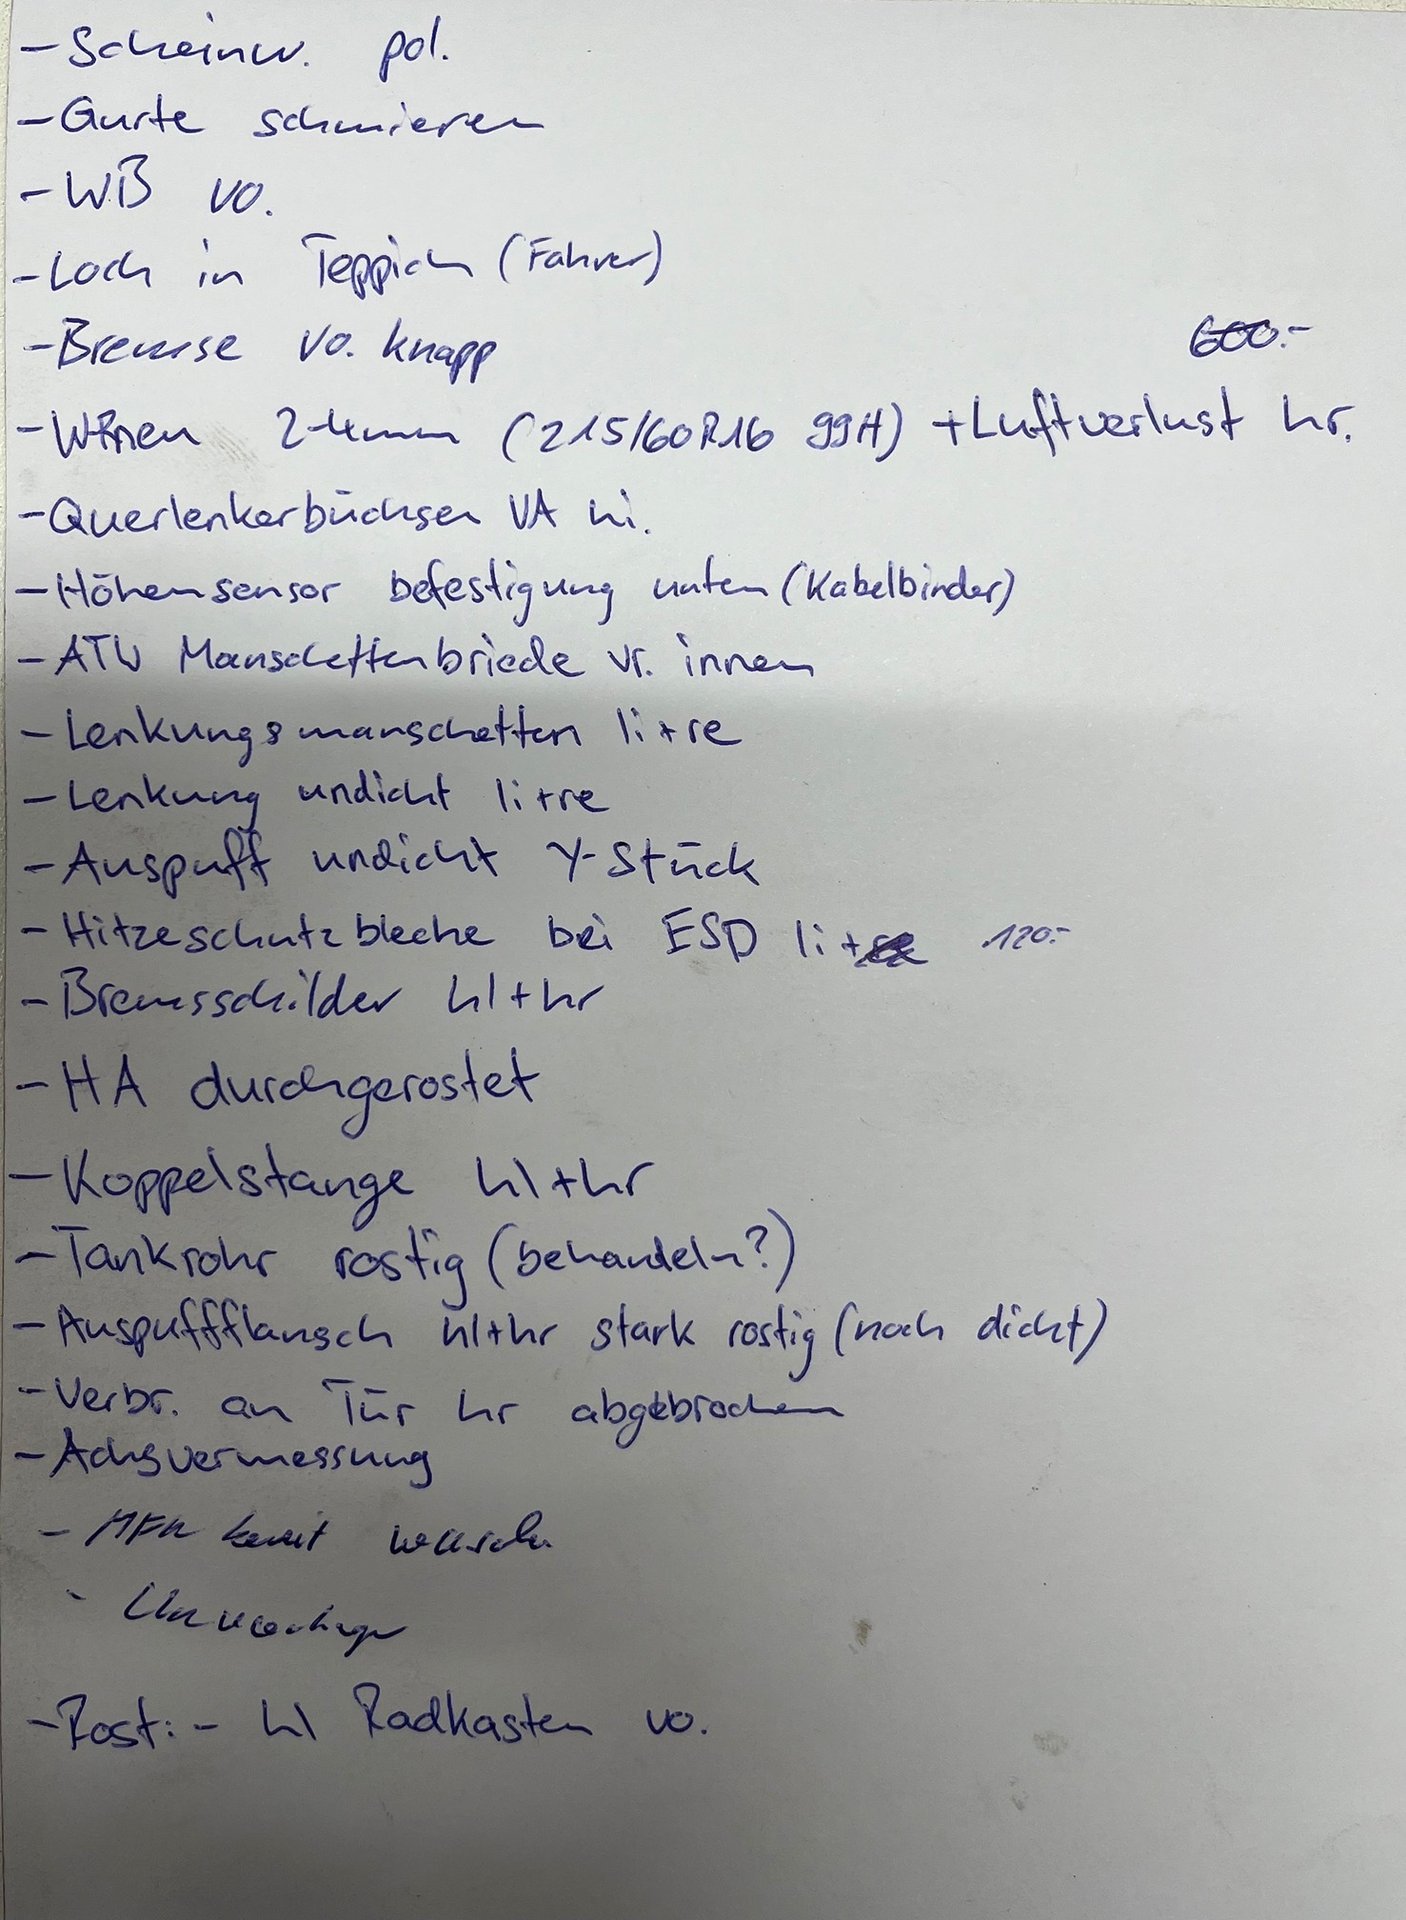 - Scheinw. pol.
- Gurte schmieren
- WB vo.
- Loch in Teppich (Fahrer)
- Bremse vo. knapp 600.-
- 2-4mm (215/60R16 99H) + Luftverlust hr.
- Querlenkerbüchsen VA hi.
- Höhensensor befestigung unten (Kabelbinder)
- ATW Manschettenbriede vr. innen
- Lenkungsmanschetten li+re
- Lenkung undicht li+re
- Auspuff undicht Y-Stück
- Hitzeschutzbleche bei ESD li+re 120.-
- Bremsschilder hl+hr
- HA durchgerostet
- Koppelstange hl+hr
- Tankrohr rostig (behandeln?)
- Auspuffflansch hl+hr stark rostig (noch dicht)
- Verbr. an Tür hr abgebrochen
- Achsvermessung
- MFK bereit
-
- Rost: - hl Radkasten vo.